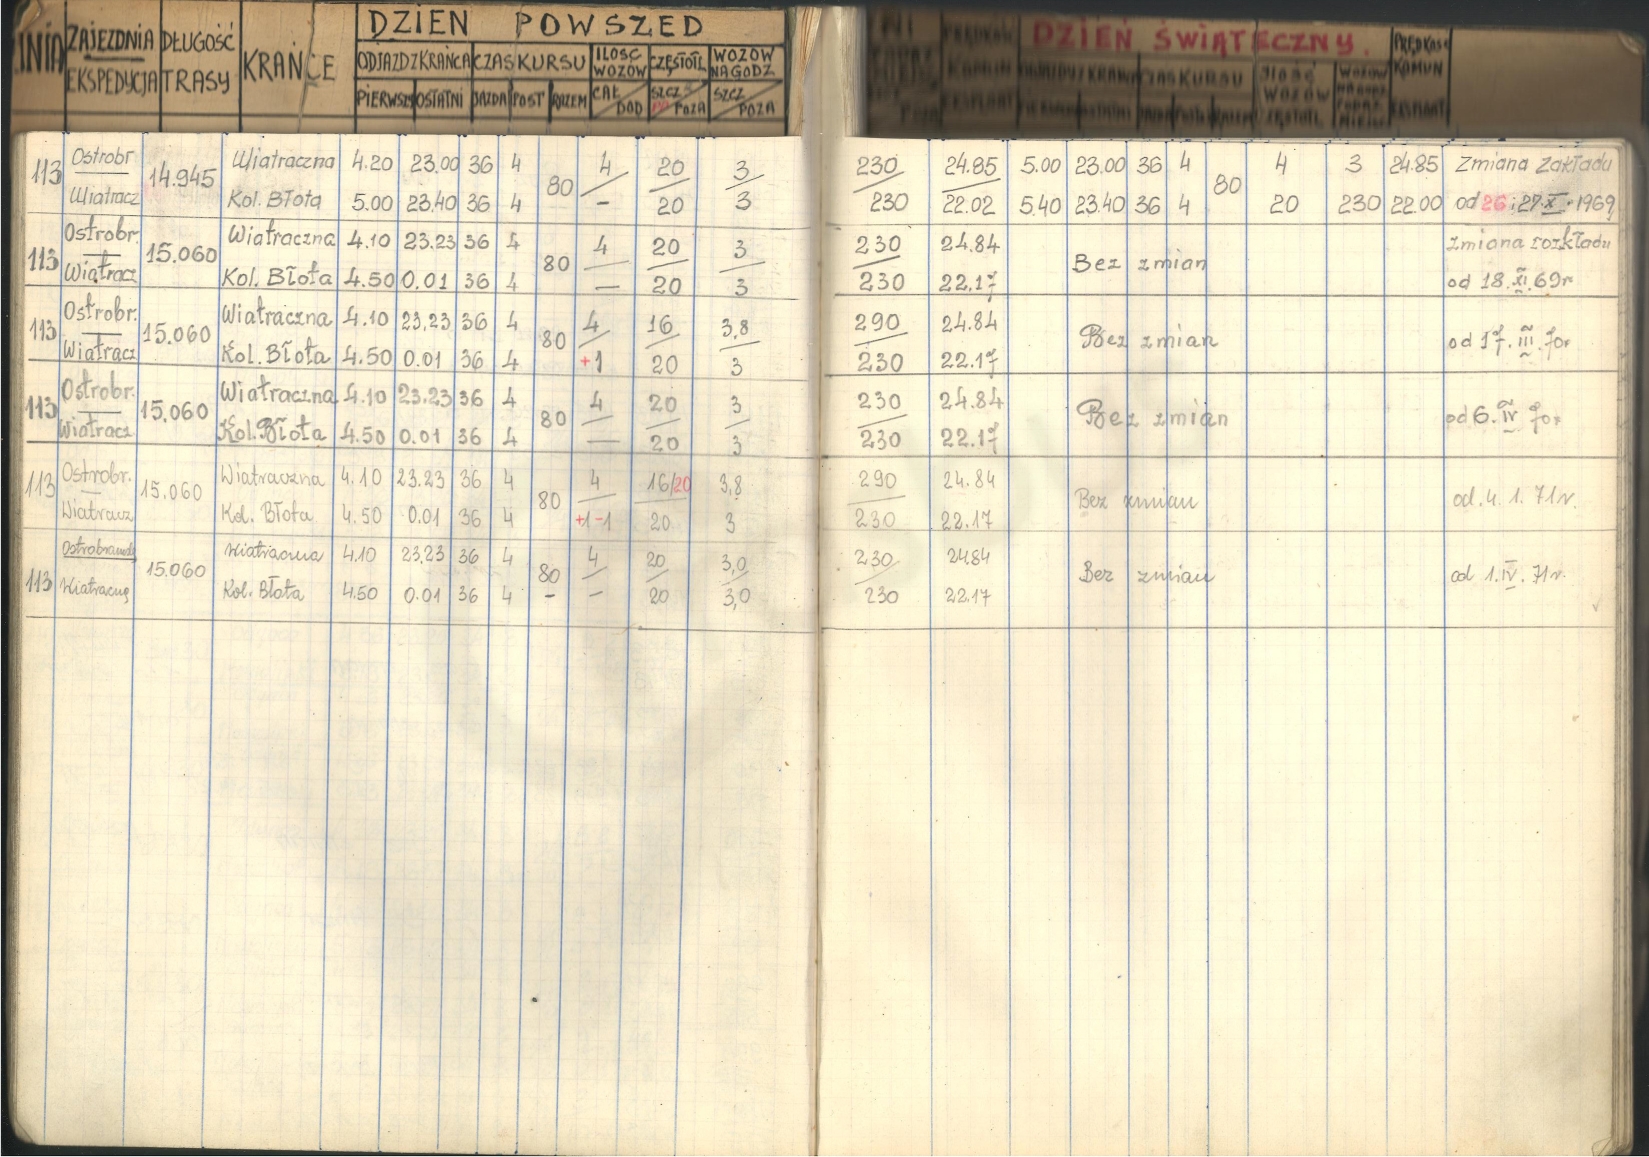 DZIEŃ POWSZED
LINIA ZAJEZDNIA DŁUGOŚĆ KRAŃCE ODJAZD Z KRAŃCA CZAS KURSU ILOŚĆ WOZÓW CZĘSTOTL WOZÓW NA GODZ
EKSPEDYCJA TRASY PIERWSZY OSTATNI JAZDA POST RAZEM CAŁ DOD SZCZ POZA SZCZ POZA
DZIEŃ ŚWIĄTECZNY.
PRĘDKOŚĆ KOMUN EKSPLOAT
CZAS KURSU ILOŚĆ WOZÓW CZĘSTOTL
113 Ostrobr 14.945 Wiatraczna 4.20 23.00 36 4 80 4 20 3 230 24.85 5.00 23.00 36 4 80 4 3 24.85 Zmiana Zakładu
Wiatracz Kol. Błota 5.00 23.40 36 4 – 20 3 230 22.02 5.40 23.40 36 4 20 230 22.00 od 26 i 27.X.1969
113 Ostrobr. 15.060 Wiatraczna 4.10 23.23 36 4 80 4 20 3 230 24.84 Bez zmian zmiana rozkładu
Wiatracz Kol. Błota 4.50 0.01 36 4 — 20 3 230 22.17 od 18.XI.69r
113 Ostrobr. 15.060 Wiatraczna 4.10 23.23 36 4 80 4 16 3,8 290 24.84 Bez zmian od 17.III.70r
Wiatracz Kol. Błota 4.50 0.01 36 4 +1 20 3 230 22.17
113 Ostrobr. 15.060 Wiatraczna 4.10 23.23 36 4 80 4 20 3 230 24.84 Bez zmian od 6.IV 70r
Wiatracz Kol. Błota 4.50 0.01 36 4 — 20 3 230 22.17
113 Ostrobr. 15.060 Wiatraczna 4.10 23.23 36 4 80 4 16/20 3,8 290 24.84 Bez zmian od. 4. 1. 71r.
Wiatracz Kol. Błota 4.50 0.01 36 4 +1 -1 20 3 230 22.17
113 15.060 Wiatraczna 4.10 23.23 36 4 80 4 20 3,0 230 24.84 Bez zmian od 1.IV. 71r.
Kol. Błota 4.50 0.01 36 4 – – 20 3,0 230 22.17